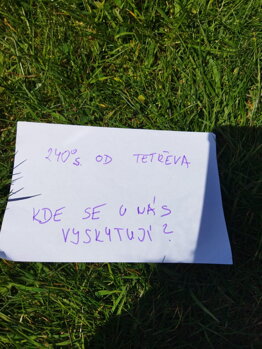 240° S. OD TETŘEVA
KDE SE U NÁS
VYSKYTUJÍ?